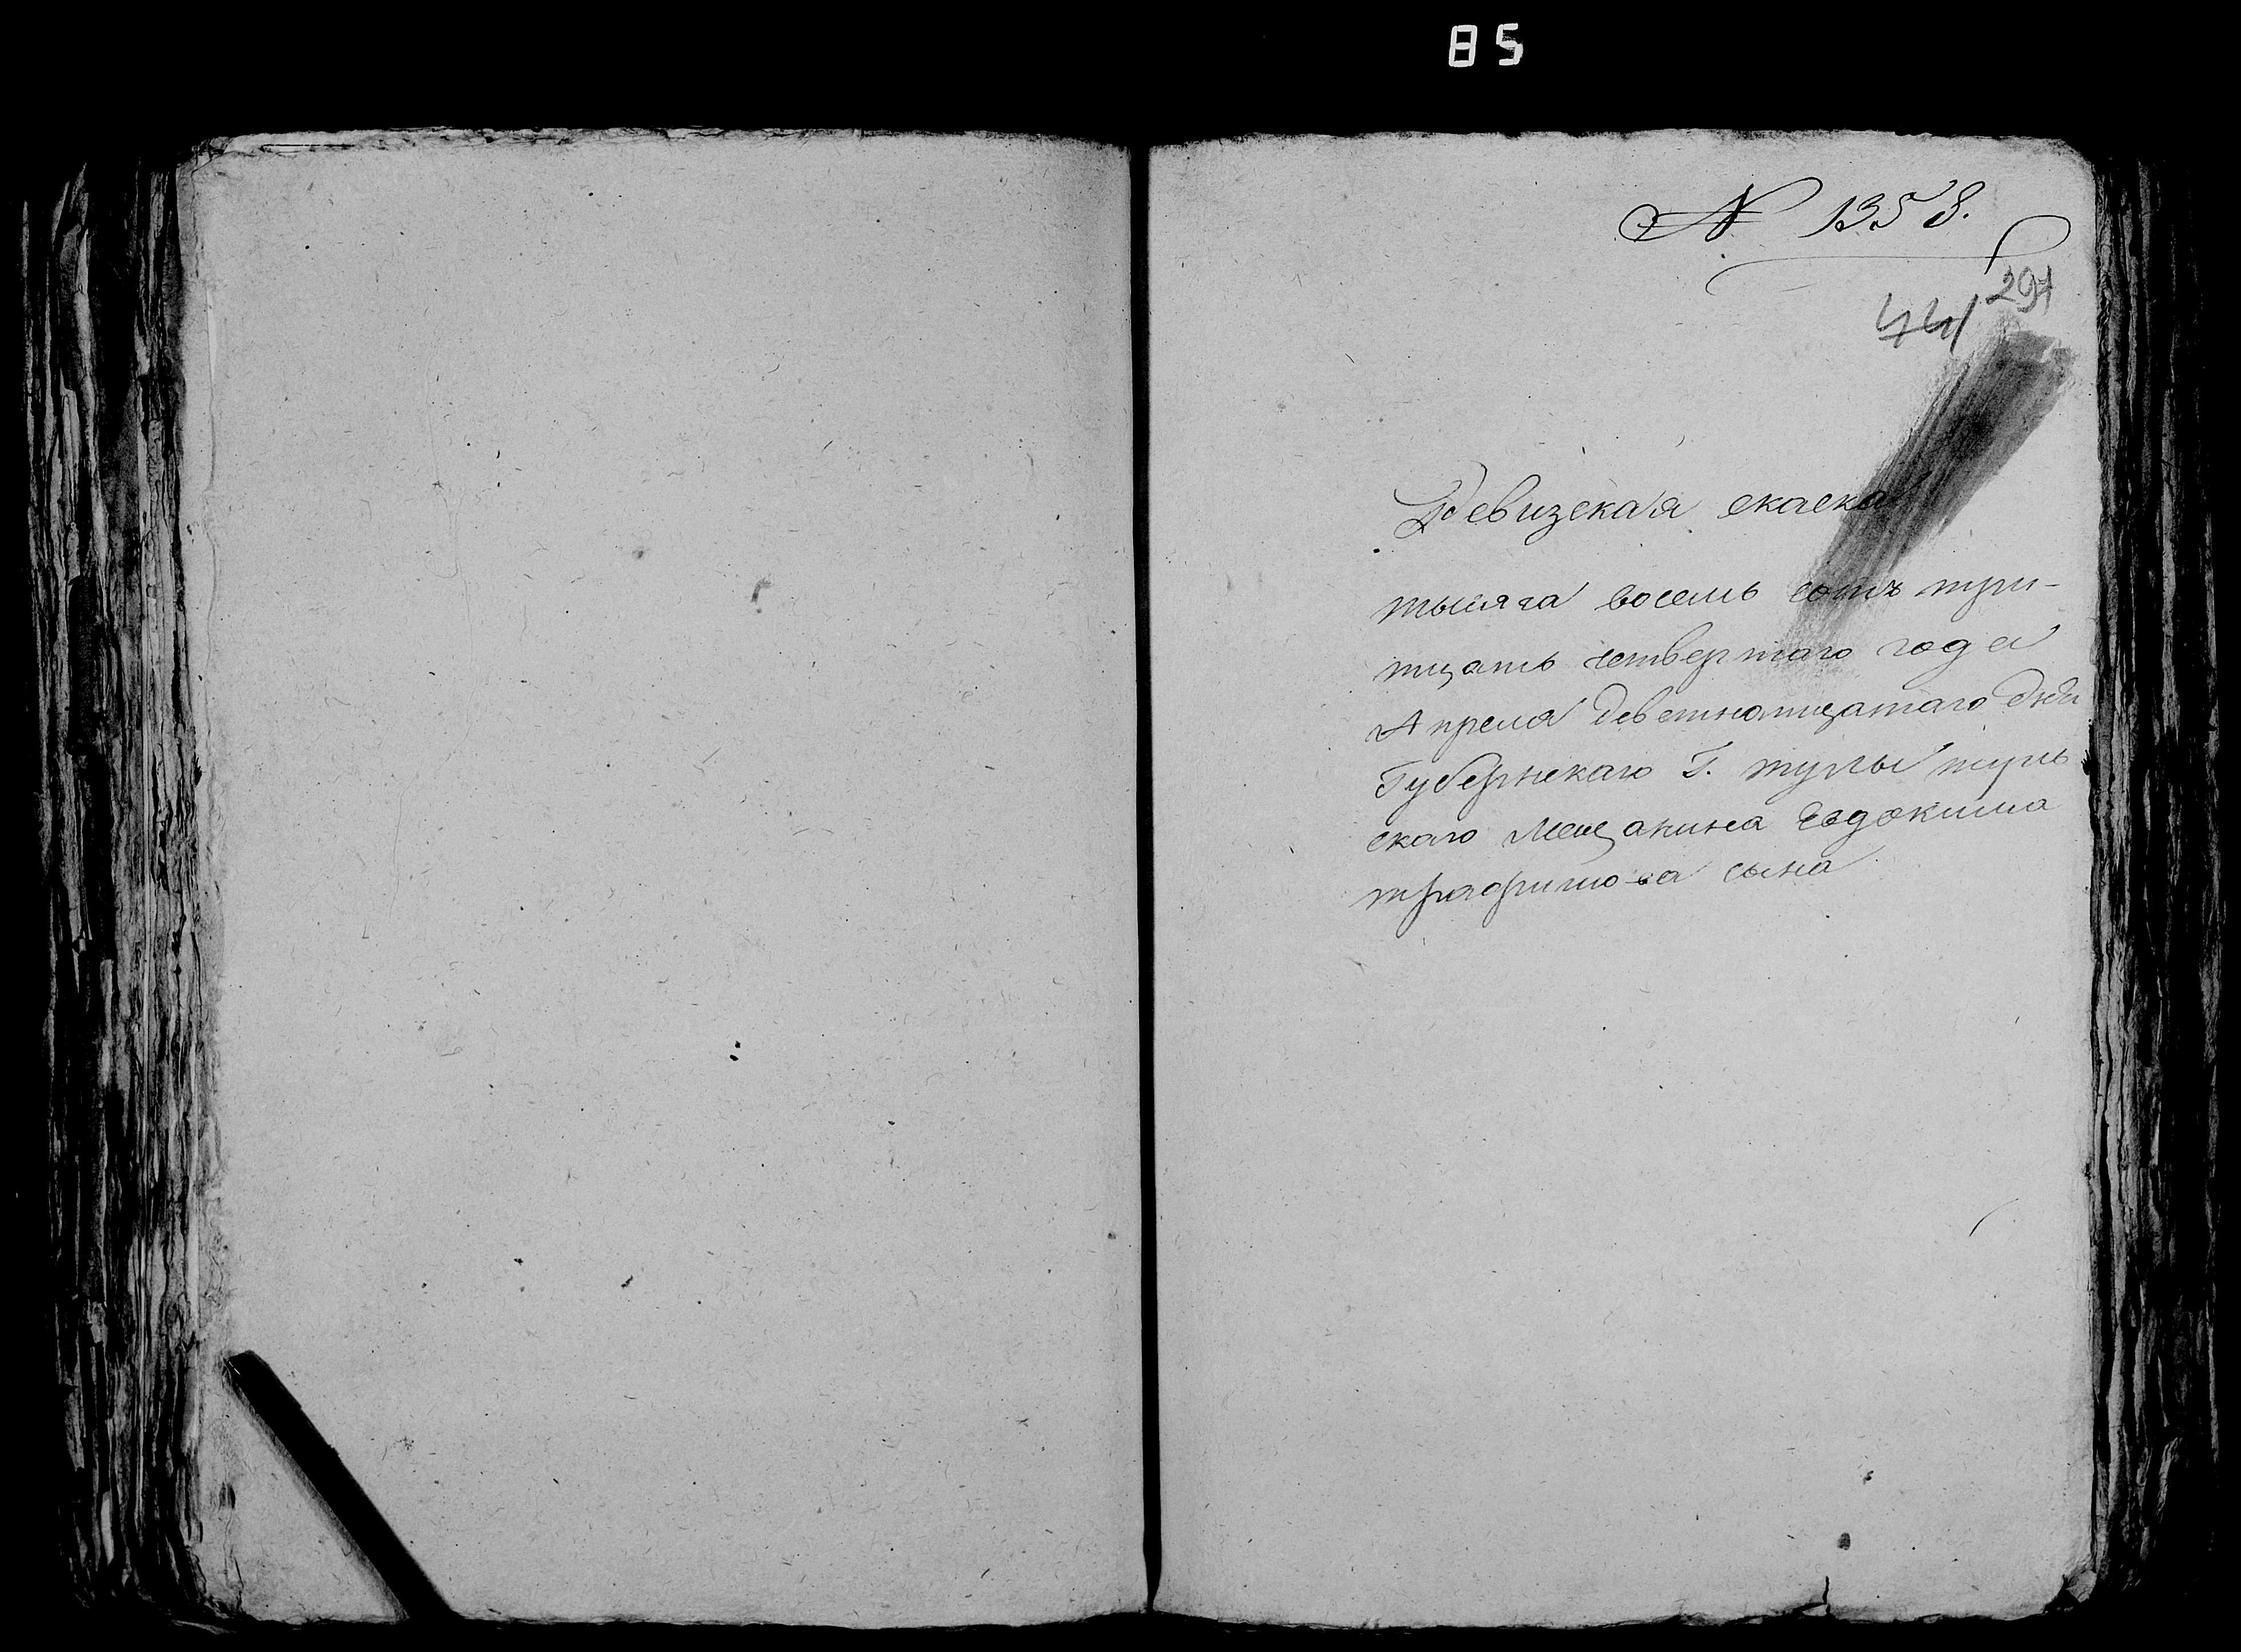 85
N 1358.
297
441
Ревизская скаска
тысяча восемь сотъ три-
тцать четвертаго года
Апреля деветнатцатаго дня
Губернскаго Г. тулы туль
скаго мещанина Евдокима
трафимова сына